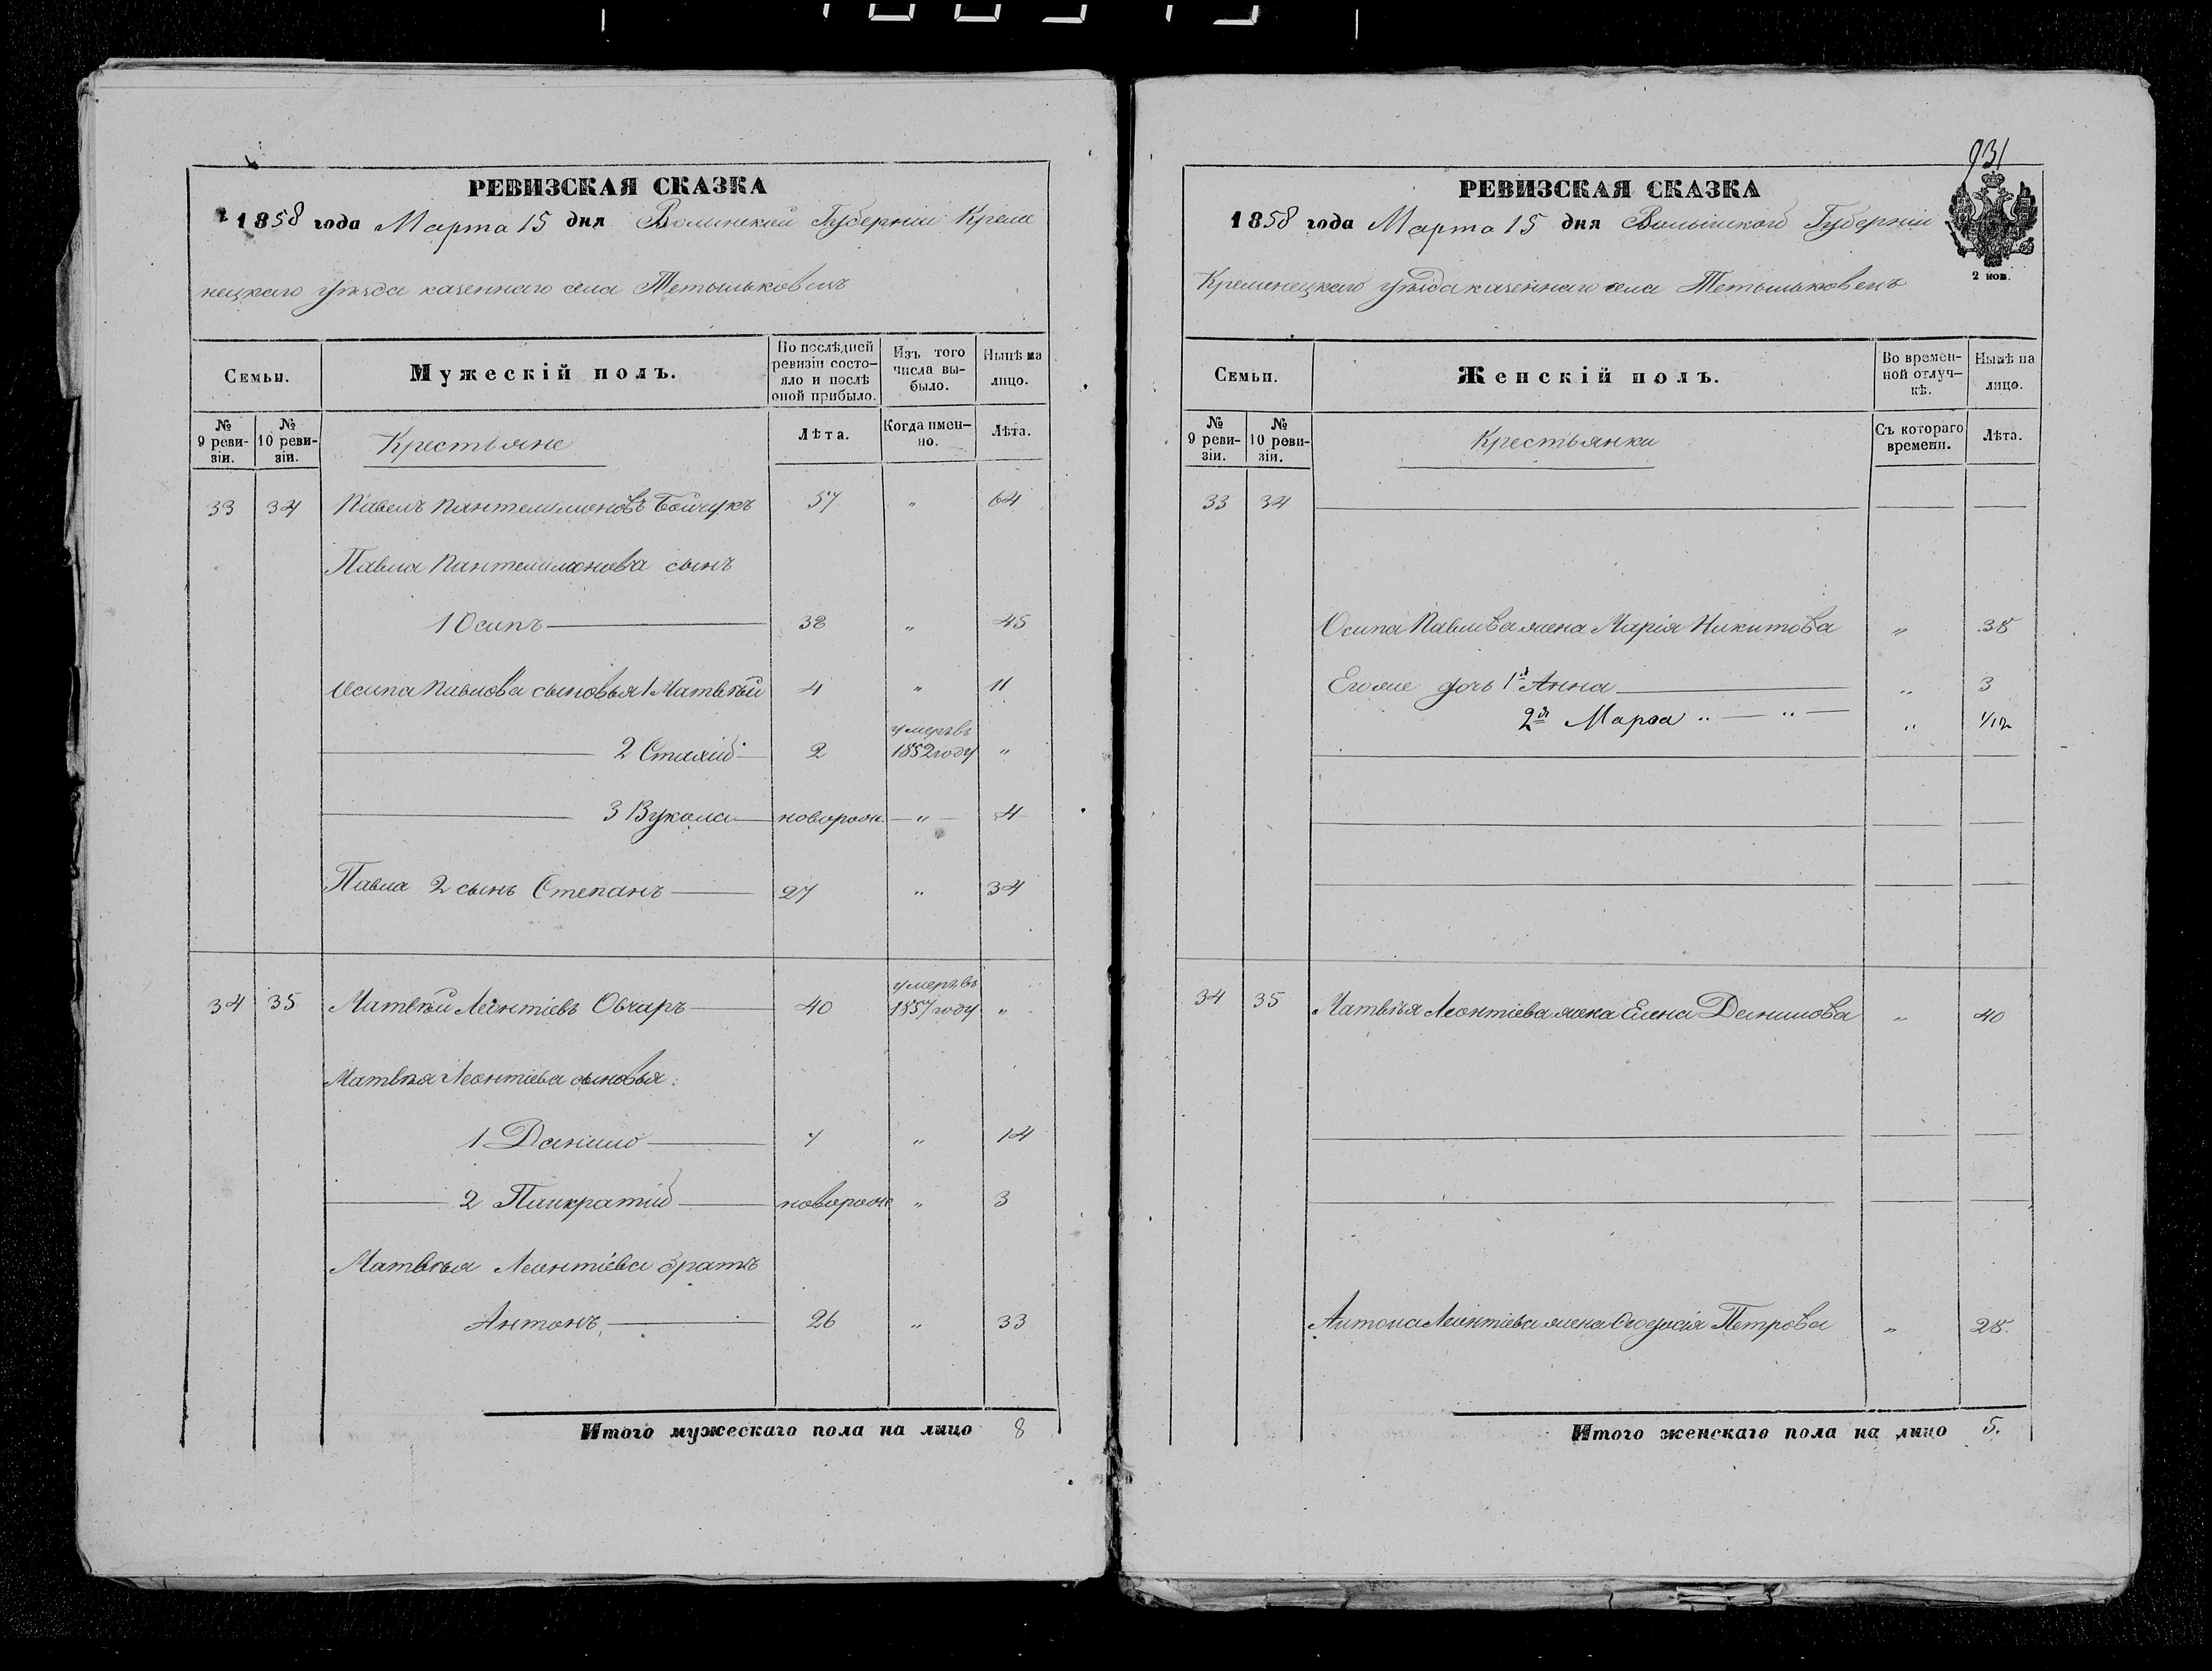 РЕВИЗСКАЯ СКАЗКА
1858 года Марта 15 дня Волынской Губерніи Креме
нецкаго уѣзда казеннаго села Тетыльковецъ
Семьи.
Мужескій полъ.
По послѣдней ревизіи состо-
яло и послѣ
оной прибыло.
Изъ того
числа вы-
было.
Нынѣ на
лицо.
№ 9 реви-
зіи.
№ 10 реви-
зіи.
Крестьяне
Лѣта.
Когда имен-
но.
Лѣта.
33 34 Павелъ Пантелимоновъ Бойчукъ 57 " 64
Павла Пантелимонова сынъ
1 Осипъ 38 " 45
Осипа Павлова сыновья 1 Матвѣй 4 " 11
2 Стахій 2 умеръ въ 1852 году "
3 Вукола новорож. " 4
Павла 2 сынъ Степанъ 27 " 34
34 35 Матвѣй Леонтіевъ Овчаръ 40 умеръ въ 1857 году "
Матвѣя Леонтіева сыновья:
1 Данило 7 " 14
2 Панкратій новорож " 3
Матвѣя Леонтіева братъ
Антонъ 26 " 33
Итого мужескаго пола на лицо 8
931
РЕВИЗСКАЯ СКАЗКА
1858 года Марта 15 дня Волынской Губерніи
2 коп.
Кременецкаго уѣзда казеннаго села Тетыльковецъ
Семьи.
Женскій полъ.
Во времен-
ной отлуч-
кѣ.
Нынѣ на
лицо.
№ 9 реви-
зіи.
№ 10 реви-
зіи.
Крестьянки
Съ котораго
времени.
Лѣта.
33 34
Осипа Павлова жена Марія Никитова " 38
Его же дочь 1я Анна " 3
2я Марѳа " " " 1/12
34 35 Матвѣя Леонтіева жена Елена Данилова " 40
Антона Леонтіева жена Ѳеодосія Петрова " 28.
Итого женскаго пола на лицо 5.